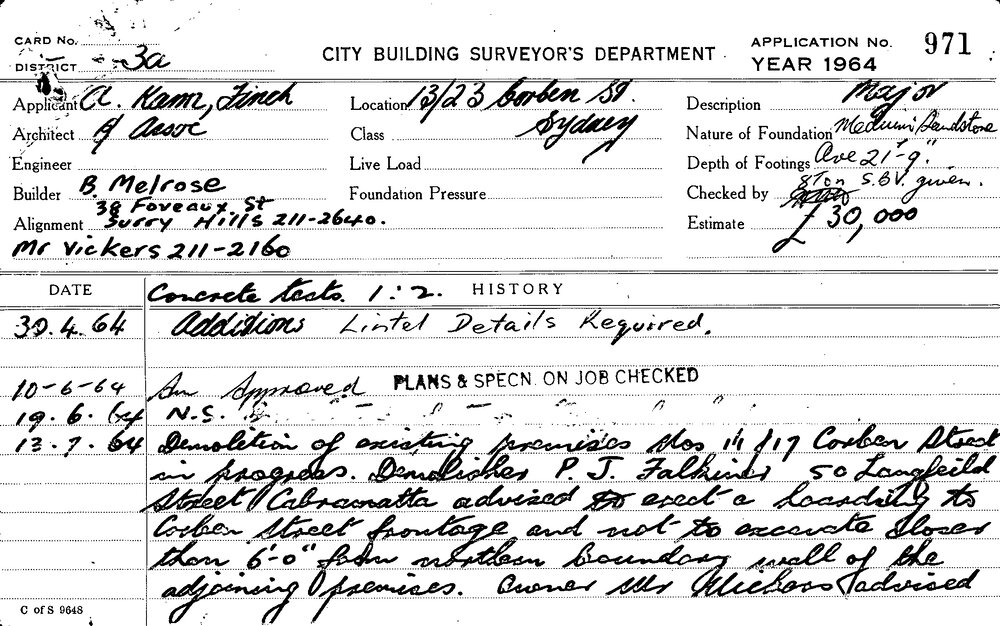 CARD No.
DISTRICT 3a
CITY BUILDING SURVEYOR'S DEPARTMENT
APPLICATION No. 971
YEAR 1964
Applicant A. Kann, Finch
Location 13/23 Corben St.
Description Major
Architect & Assoc
Class Sydney
Nature of Foundation Medium Sandstone
Engineer
Live Load
Depth of Footings Ave 21'-9".
Builder B. Melrose
Foundation Pressure
Checked by 8 Ton S.B.V. given.
38 Foveaux St
Alignment Surry Hills 211-2640.
Estimate £30,000
Mr Vickers 211-2160
DATE
Concrete tests. 1:2. HISTORY
30.4.64 Additions Lintel Details Required.
10-6-64 Approved PLANS & SPECN. ON JOB CHECKED
19.6.64 N.S.
13.7.64 Demolition of existing premises Nos 17 Corben Street
in progress. Demolisher P. J. Falkiner 50 Langfeild
Street Cabramatta advised to erect a hoarding to
Corben Street frontage and not to excavate closer
than 6'-0" from northern boundary wall of the
adjoining premises. Owner Mr advised
C of S 9648